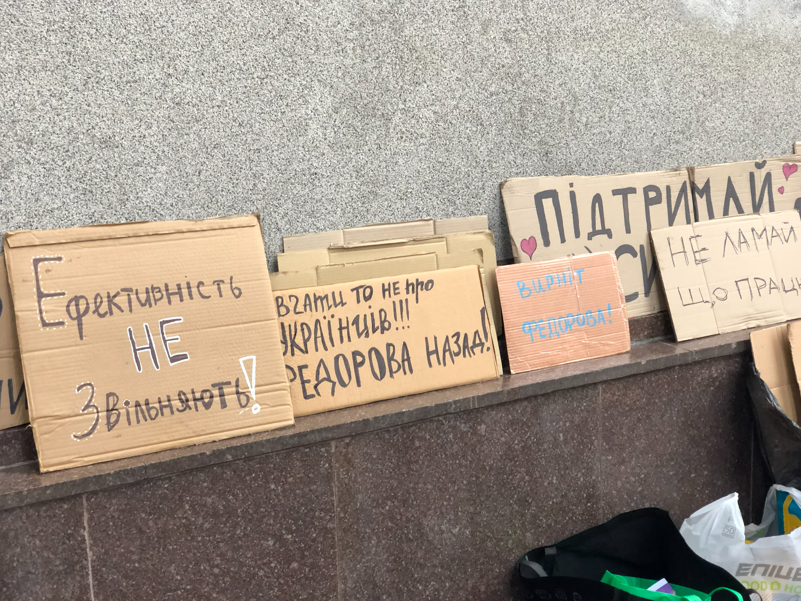 Ефективність
НЕ
Звільняють!
ВЧАТИ ТО НЕ ПРО
УКРАЇНЦІВ!!!
ФЕДОРОВА НАЗАД!
ВИРНІТ
ФЕДОРОВА!
ПІДТРИМАЙ
НЕ ЛАМАЙ
ЩО
ЕПІЦЕ